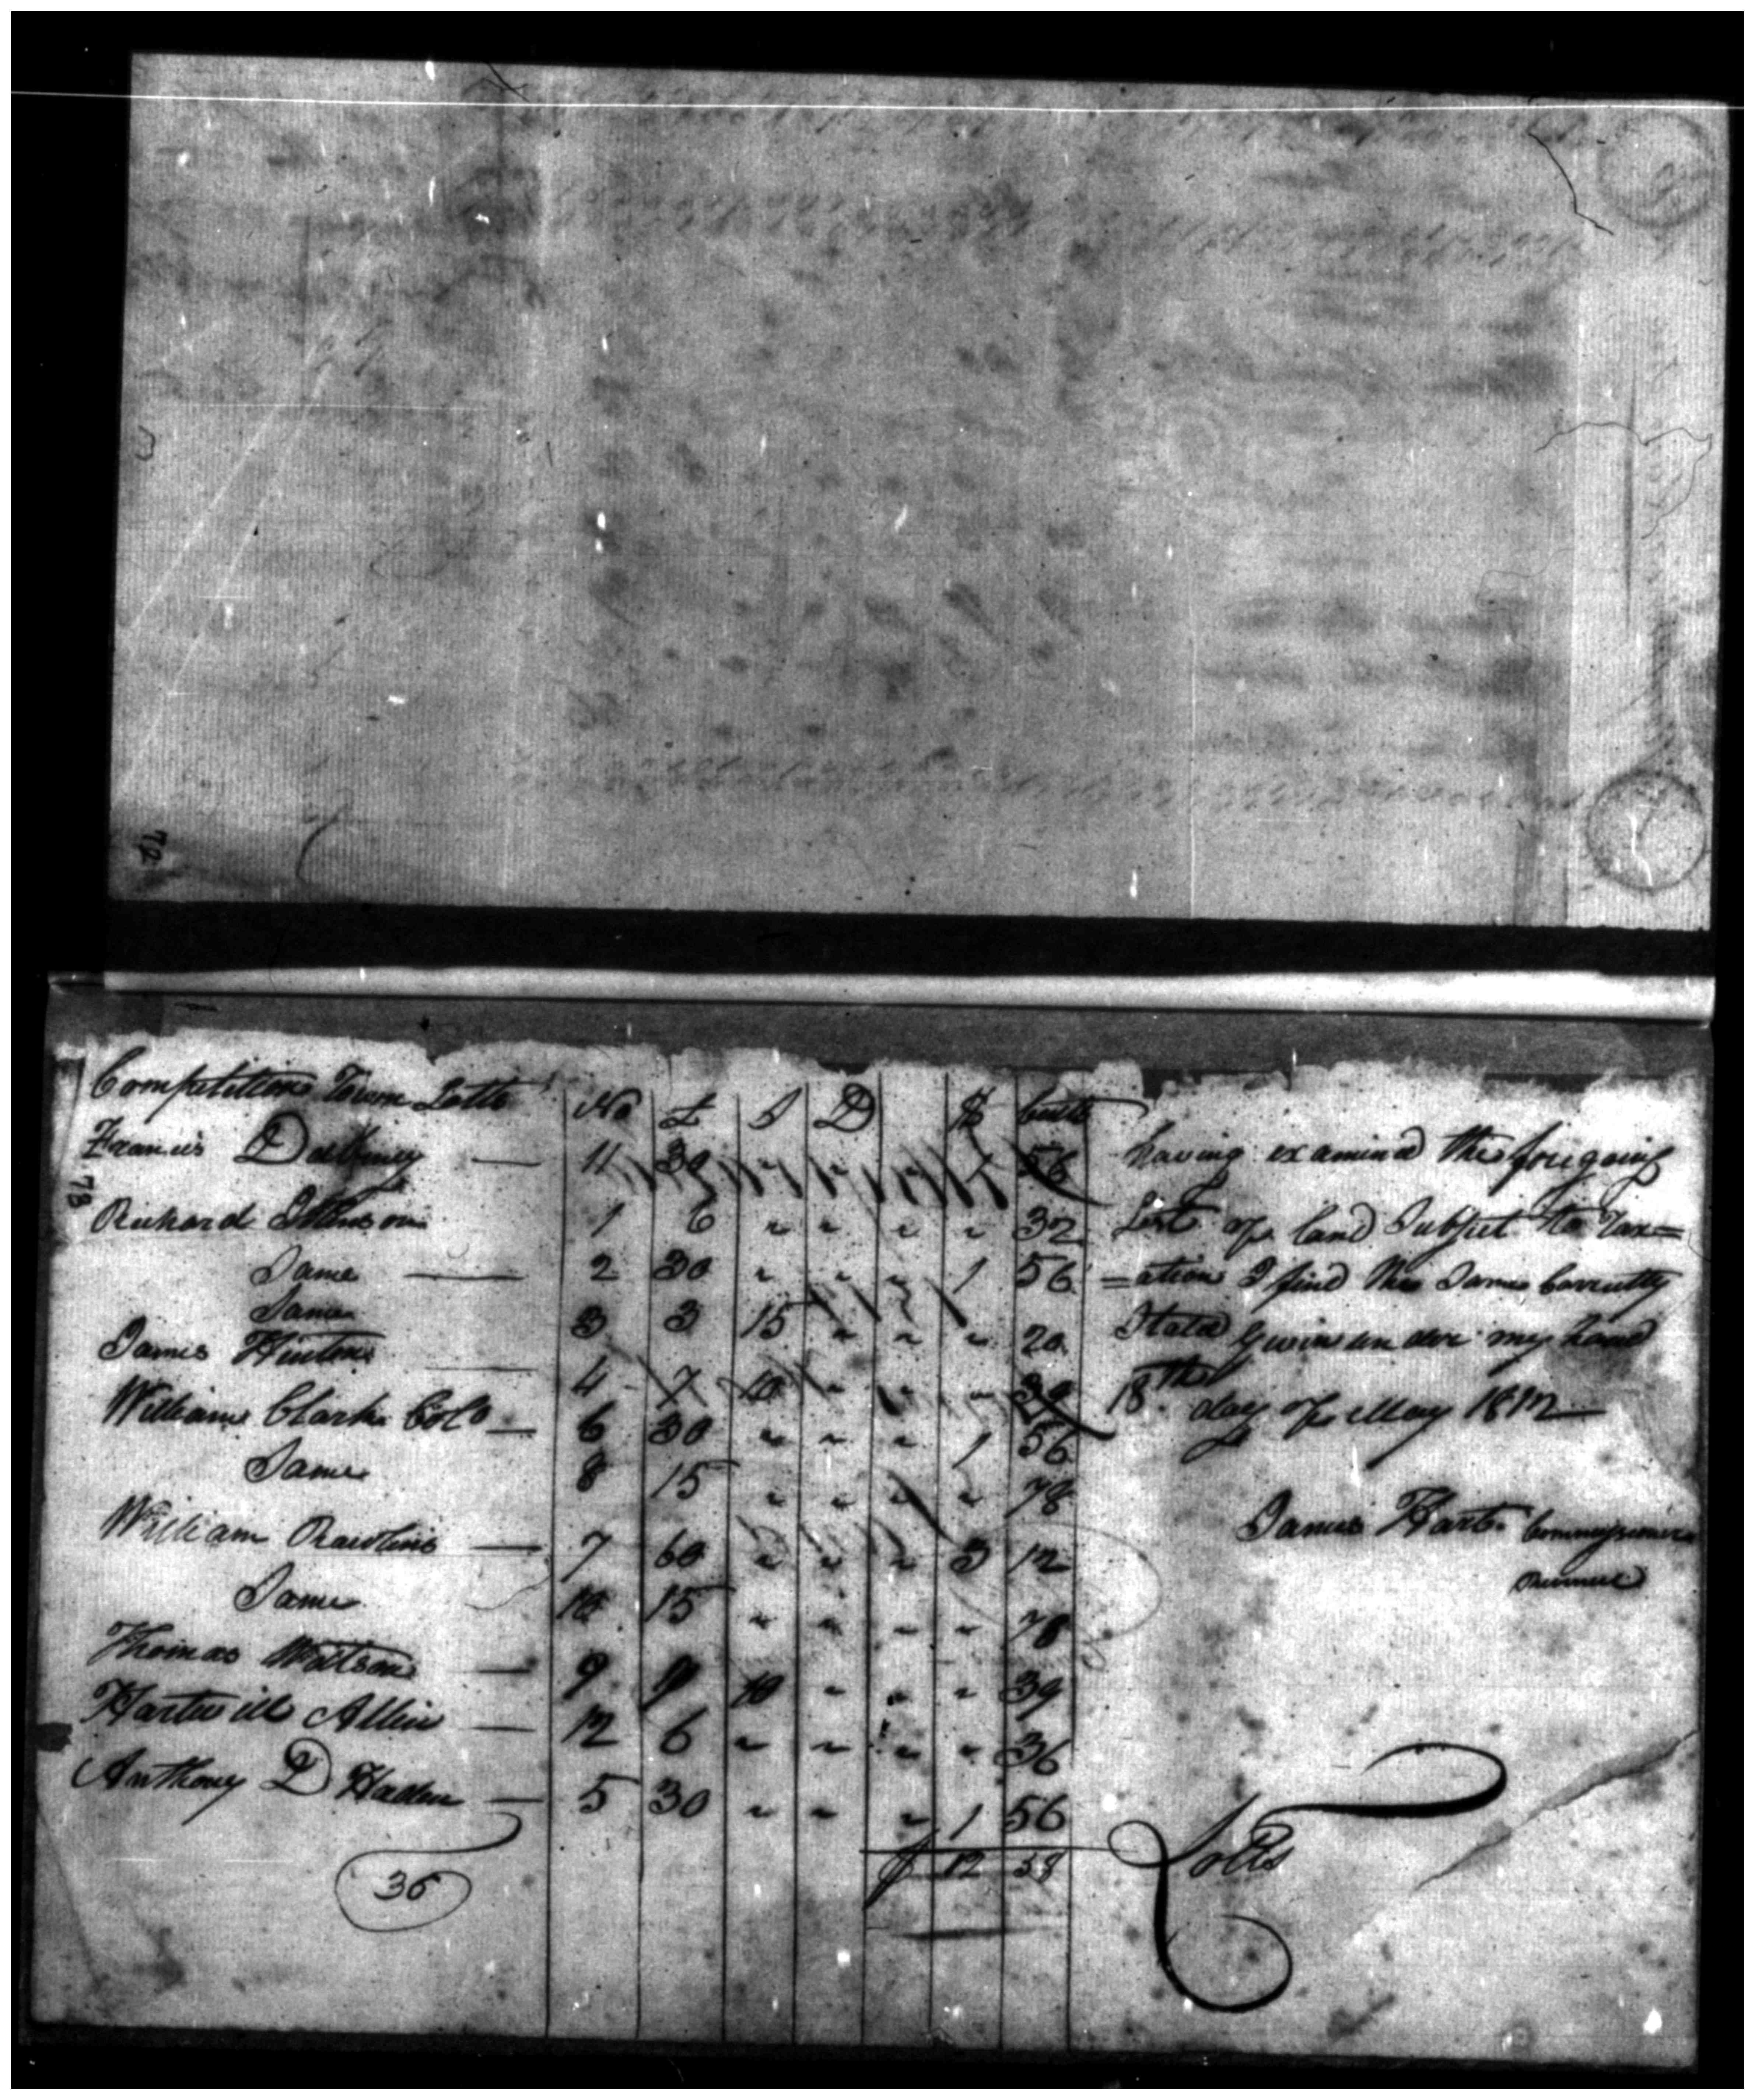 72
Competition Town Lotts No £ S D $ Cents
Francis Dabney — 11 30 56
73
Richard Johnson 1 6 " " " " 32
Same — 2 30 " " " 1 56
Same 3 3 15 " " " 20
James Hinton — 4 7 10 " " " 39
William Clark Colo — 6 30 " " " 1 56
Same 8 15 " " " " 78
William Rawlins — 7 60 " " " 3 12
Same 10 15 " " " " 78
Thomas Watson — 9 10 " " " 39
Hartwill Allin — 12 6 " " " " 36
Anthony D Haden — 5 30 " " " 1 56
$ 12 58
36
having examined the foregoing
List of land Subject to Tax=
=ation I find the Same Correctly
Stated Given under my hand
18th day of May 1812
James Hart Commissioner
Revenue
Lotts